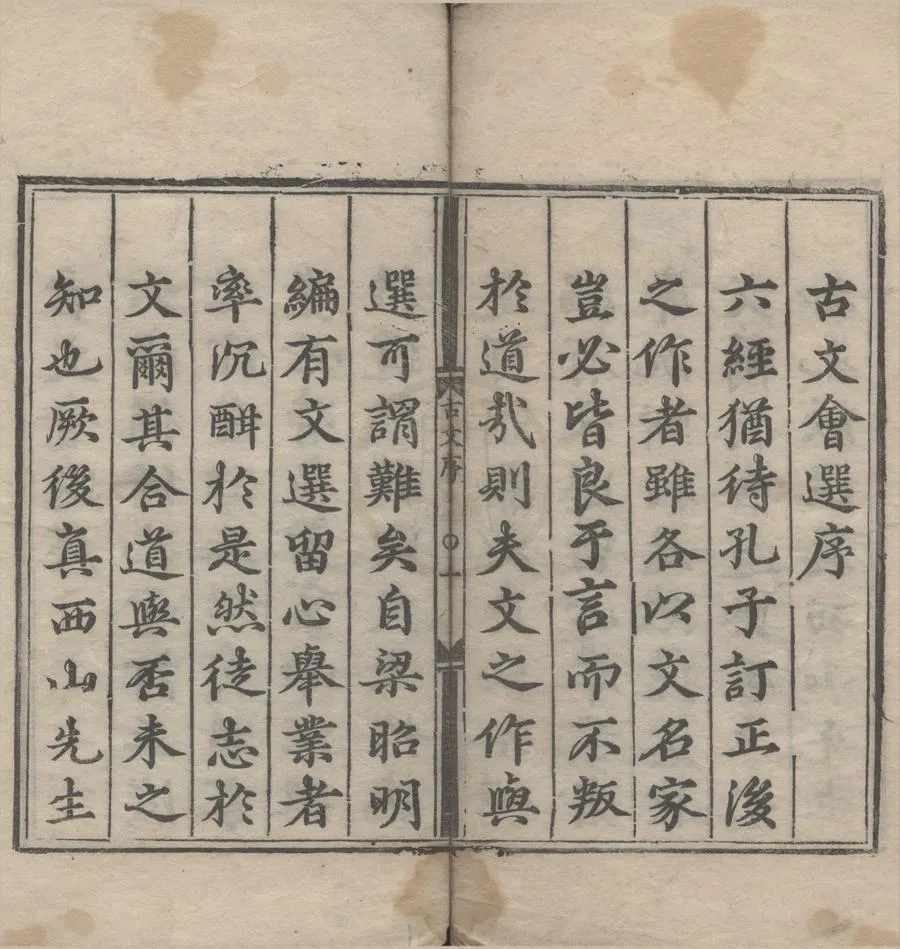 古文會選序
六經猶待孔子訂正後
之作者雖各以文名家
豈必皆良于言而不叛
於道哉則夫文之作與
古文序 〇一
選可謂難矣自梁昭明
編有文選留心舉業者
率沉酣於是然徒志於
文爾其合道與否未之
知也厥後真西山先生